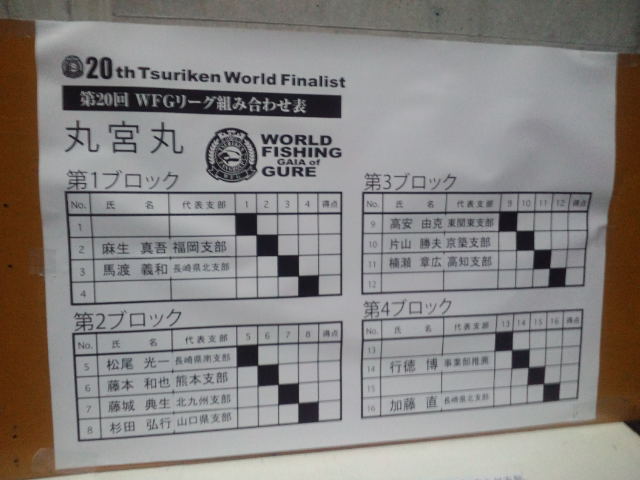 20th Tsuriken World Finalist
第20回 WFGリーグ組み合わせ表
丸宮丸
WORLD
FISHING
GAIA of
GURE
第1ブロック
No. 氏 名 代表支部 1 2 3 4 得点
1
2 麻生 真吾 福岡支部
3 馬渡 義和 長崎県北支部
4
第2ブロック
No. 氏 名 代表支部 5 6 7 8 得点
5 松尾 光一 長崎県南支部
6 藤本 和也 熊本支部
7 藤城 典生 北九州支部
8 杉田 弘行 山口県支部
第3ブロック
No. 氏 名 代表支部 9 10 11 12 得点
9 高安 由克 東関東支部
10 片山 勝夫 京築支部
11 楠瀬 章広 高知支部
12
第4ブロック
No. 氏 名 代表支部 13 14 15 16 得点
13
14 行徳 博 事業部推薦
15
16 加藤 直 長崎県北支部